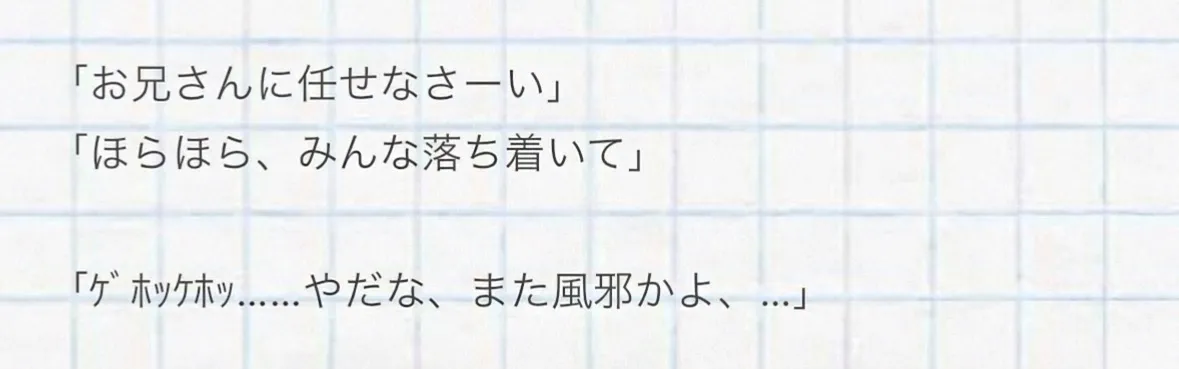 「お兄さんに任せなさーい」
「ほらほら、みんな落ち着いて」
「ｹﾞﾎｯｹﾎｯ……やだな、また風邪かよ、…」